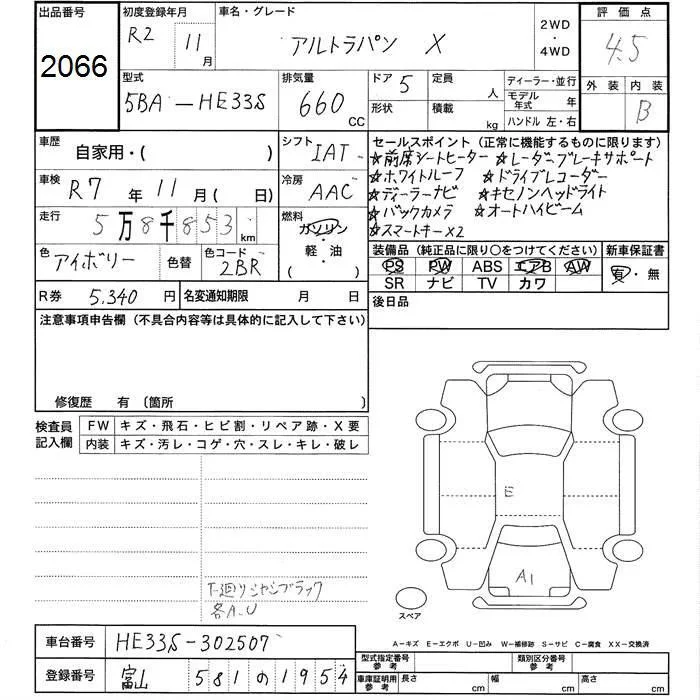 出品番号 初度登録年月 車名・グレード 2WD・4WD 評価点
2066 R2年 11月 アルトラパン X 4.5
型式 排気量 ドア 5 定員 人 ディーラー・並行 外装 内装
5BA-HE33S 660 CC 形状 積載 kg モデル年式 年 B
ハンドル 左・右
車歴 自家用・( ) シフト IAT セールスポイント (正常に機能するものに限ります)
☆前席シートヒーター ☆レーダーブレーキサポート
車検 R7年 11月 ( 日) 冷房 AAC ☆ホワイトルーフ ☆ドライブレコーダー
☆ディーラーナビ ☆キセノンヘッドライト
走行 5万8千853km 燃料 ガソリン 軽・油 ( ) ☆バックカメラ ☆オートハイビーム
☆スマートキーX2
色 アイボリー 色替 色コード 2BR 装備品 (純正品に限り○をつけてください) 新車保証書
PS PW ABS エアB AW 有・無
SR ナビ TV カワ
R券 5.340円 名変通知期限 月 日 後日品
注意事項申告欄 (不具合内容等は具体的に記入して下さい)
修復歴 有 〔箇所 〕
検査員記入欄 FW キズ・飛石・ヒビ割・リペア跡・X要
内装 キズ・汚レ・コゲ・穴・スレ・キレ・破レ
E
A1
下廻りシャシブラック
各A.U
スペア
車台番号 HE33S-302507
A-キズ E-エクボ U-凹み W-補修跡 S-サビ C-腐食 XX-交換済
登録番号 富山 581 の 1954
型式指定番号 参考 類別区分番号 参考
車庫証明用 参考 長さ cm 幅 cm 高さ cm